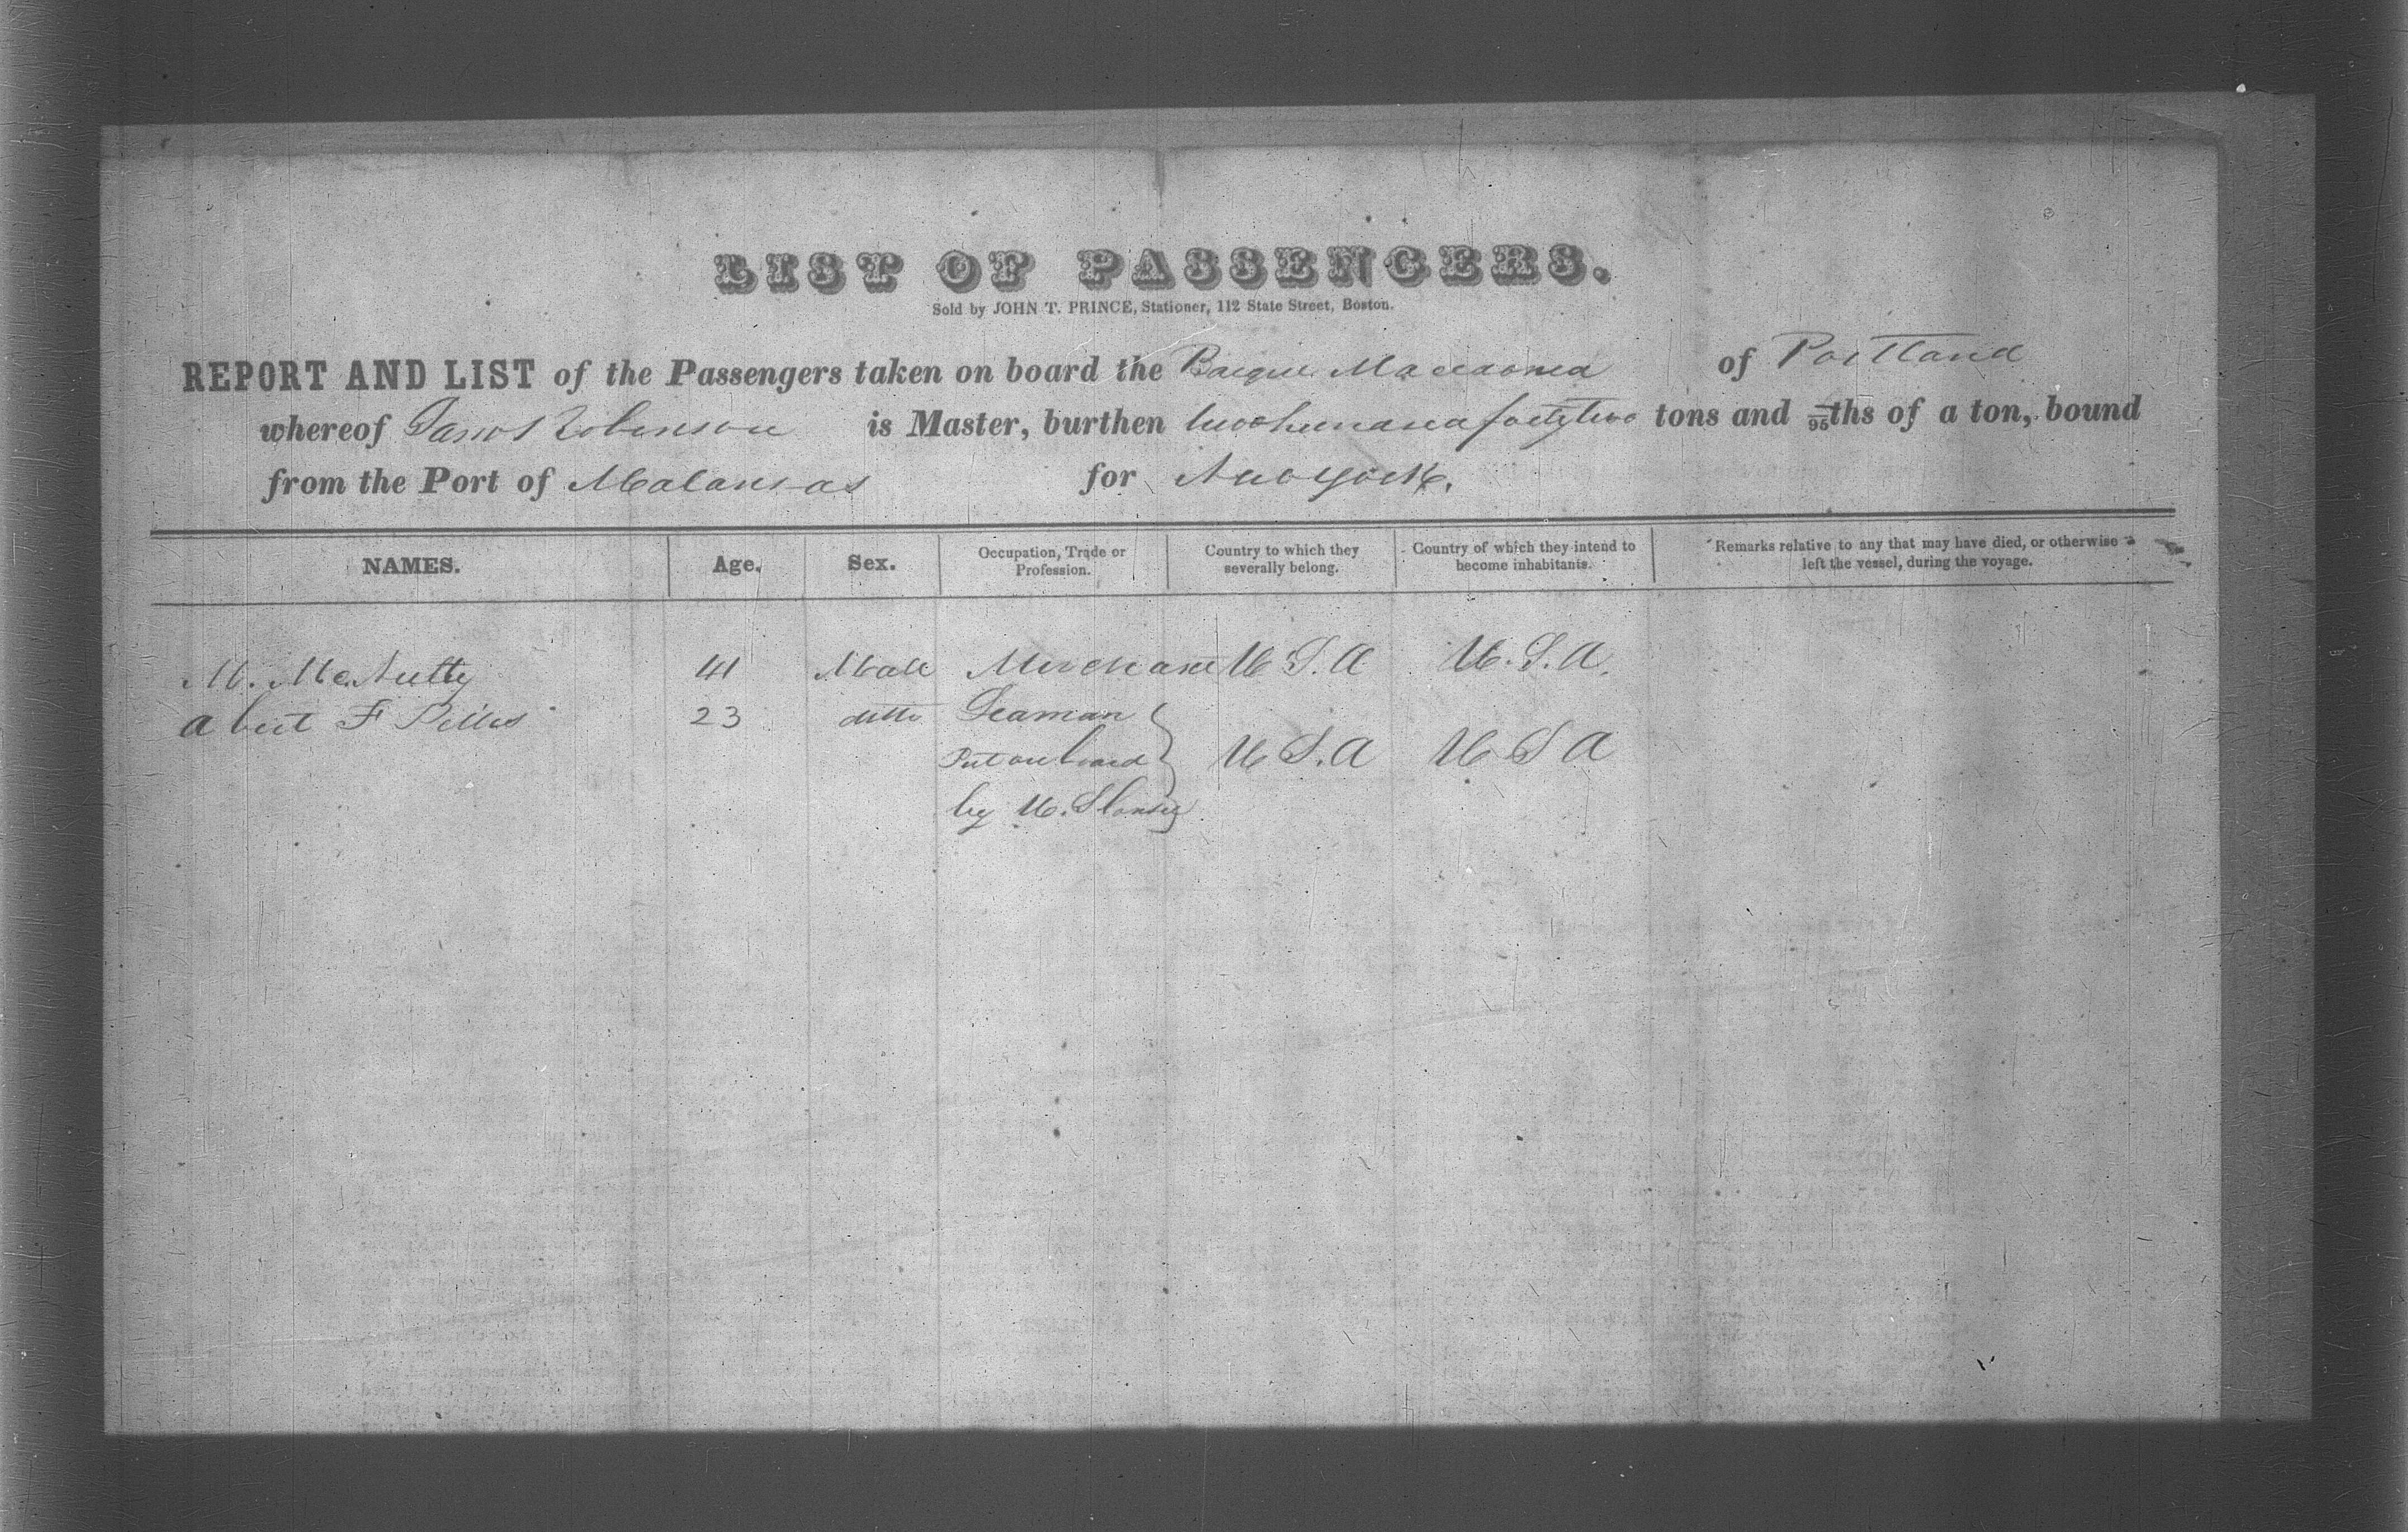 LIST OF PASSENGERS.
Sold by JOHN T. PRINCE, Stationer, 112 State Street, Boston.
REPORT AND LIST of the Passengers taken on board the Barque Macedonia of Portland
whereof Robinson is Master, burthen two hundred forty two tons and 95ths of a ton, bound
from the Port of Matansas for New York.
NAMES. Age. Sex. Occupation, Trade or Profession. Country to which they severally belong. Country of which they intend to become inhabitants. Remarks relative to any that may have died, or otherwise left the vessel, during the voyage.
M. McNulty 41 Male Merchant U S. A U. S. A.
Albert F 23 ditto Seaman
Put on board U S. A U S A
by U. S